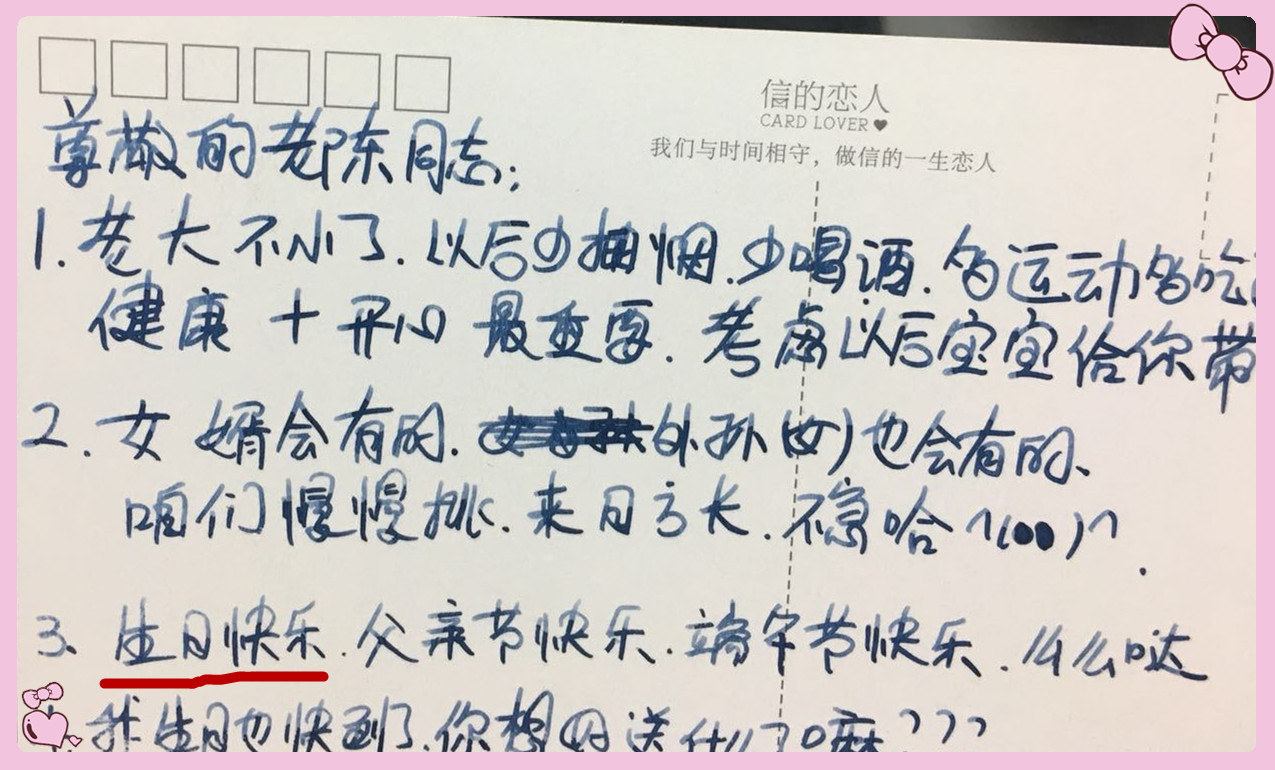 信的恋人
CARD LOVER
我们与时间相守，做信的一生恋人
尊敬的老陈同志:
1. 老大不小了.以后少抽烟.少喝酒.多运动多吃
健康+开心最重要.考虑以后宝宝给你带
2. 女婿会有的.外孙(女)也会有的、
咱们慢慢挑.来日方长.不急哈^(oo)^.
3、生日快乐.父亲节快乐.端午节快乐.么么哒
我生日也快到了.你想好送什么了嘛???